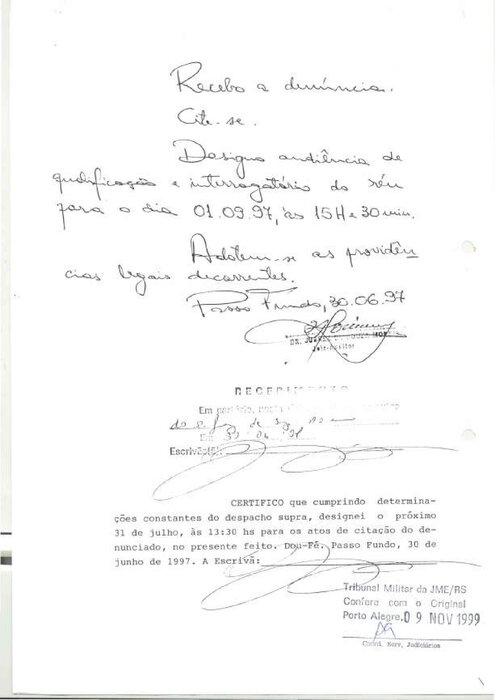 Recebo a denúncia.
Cite-se.
Designo audiência de
qualificação e interrogatório do réu
para o dia 01.09.97, às 15H e 30 min.
Adotem-se as providên
cias legais decorrentes.
Passo Fundo, 30.06.97
DR.
Juiz-Auditor
RECEBIMENTO
Em
Em
Escrivã(o)
CERTIFICO que cumprindo determina-
ções constantes do despacho supra, designei o próximo
31 de julho, às 13:30 hs para os atos de citação do de-
nunciado, no presente feito. Dou-Fé. Passo Fundo, 30 de
junho de 1997. A Escrivã:
Tribunal Militar da JME/RS
Confere com o Original
Porto Alegre, 09 NOV 1999
Coord. Serv. Judiciários